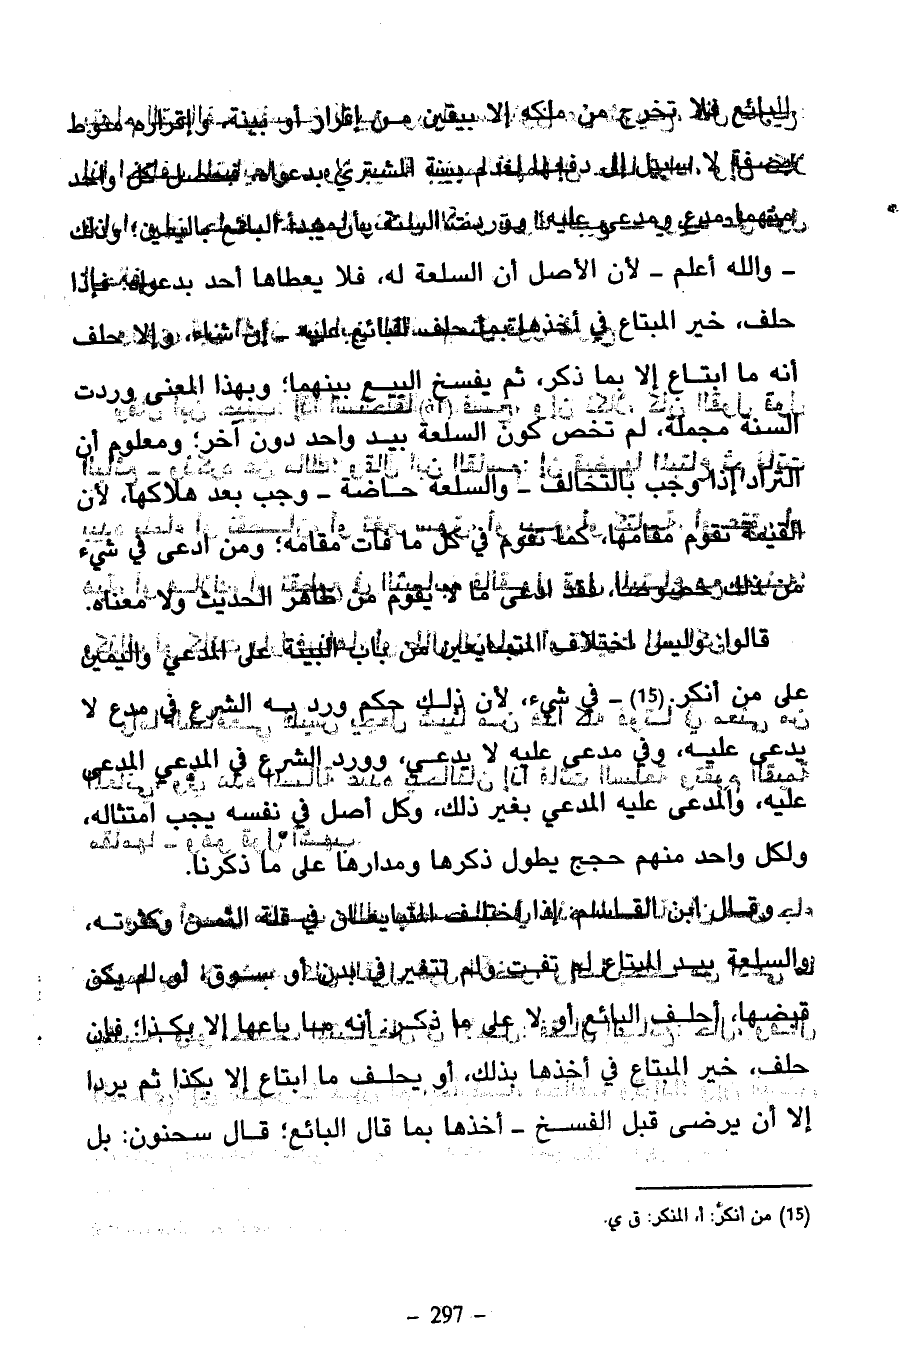 للبائع فلا تخرج من ملكه إلا بيقين من إقرار أو بينة، وإقراره منوط
بصفة لا سبيل إلى دفعها لعدم بينة المشتري بدعواه، فحصل كل واحد
منهما مدع ومدعى عليه، وردت السنة بأن يبدأ البائع باليمين؛ وذلك
– والله أعلم – لأن الأصل أن السلعة له، فلا يعطاها أحد بدعواه؛ فإذا
حلف، خير المبتاع في أخذها بما حلف البائع عليه – إن شاء، وإلا حلف
أنه ما ابتاع إلا بما ذكر، ثم يفسخ البيع بينهما؛ وبهذا المعنى وردت
السنة مجملة، لم تخص كون السلعة بيد واحد دون آخر؛ ومعلوم أن
التراد إذا وجب بالتحالف – والسلعة حاضة – وجب بعد هلاكها، لأن
القيمة تقوم مقامها، كما تقوم في كل ما فات مقامه؛ ومن ادعى في شيء
من ذلك خصوصا، فقد ادعى ما لا يقوم من ظاهر الحديث ولا معناه.
قالوا: وليس اختلاف المتبايعين من باب البينة على المدعي واليمين
على من أنكر.(15) – في شيء، لأن ذلك حكم ورد به الشرع في مدع لا
يدعى عليه، وفي مدعى عليه لا يدعي، وورد الشرع في المدعي المدعى
عليه، والمدعى عليه المدعي بغير ذلك، وكل أصل في نفسه يجب امتثاله،
ولكل واحد منهم حجج يطول ذكرها ومدارها على ما ذكرنا.
وقال ابن القاسم: إذا اختلف المتبايعان في قلة الثمن وكثرته،
والسلعة بيد المبتاع لم تفت ولم تتغير في بدن أو سوق، أو لم يكن
قبضها، أحلف البائع أو لا على ما ذكر: أنه ما باعها إلا بكذا؛ فإن
حلف، خير المبتاع في أخذها بذلك، أو يحلف ما ابتاع إلا بكذا ثم يردا
إلا أن يرضى قبل الفسخ – أخذها بما قال البائع؛ قال سحنون: بل
(15) من أنكر: أ، المنكر: ق ي.
– 297 –